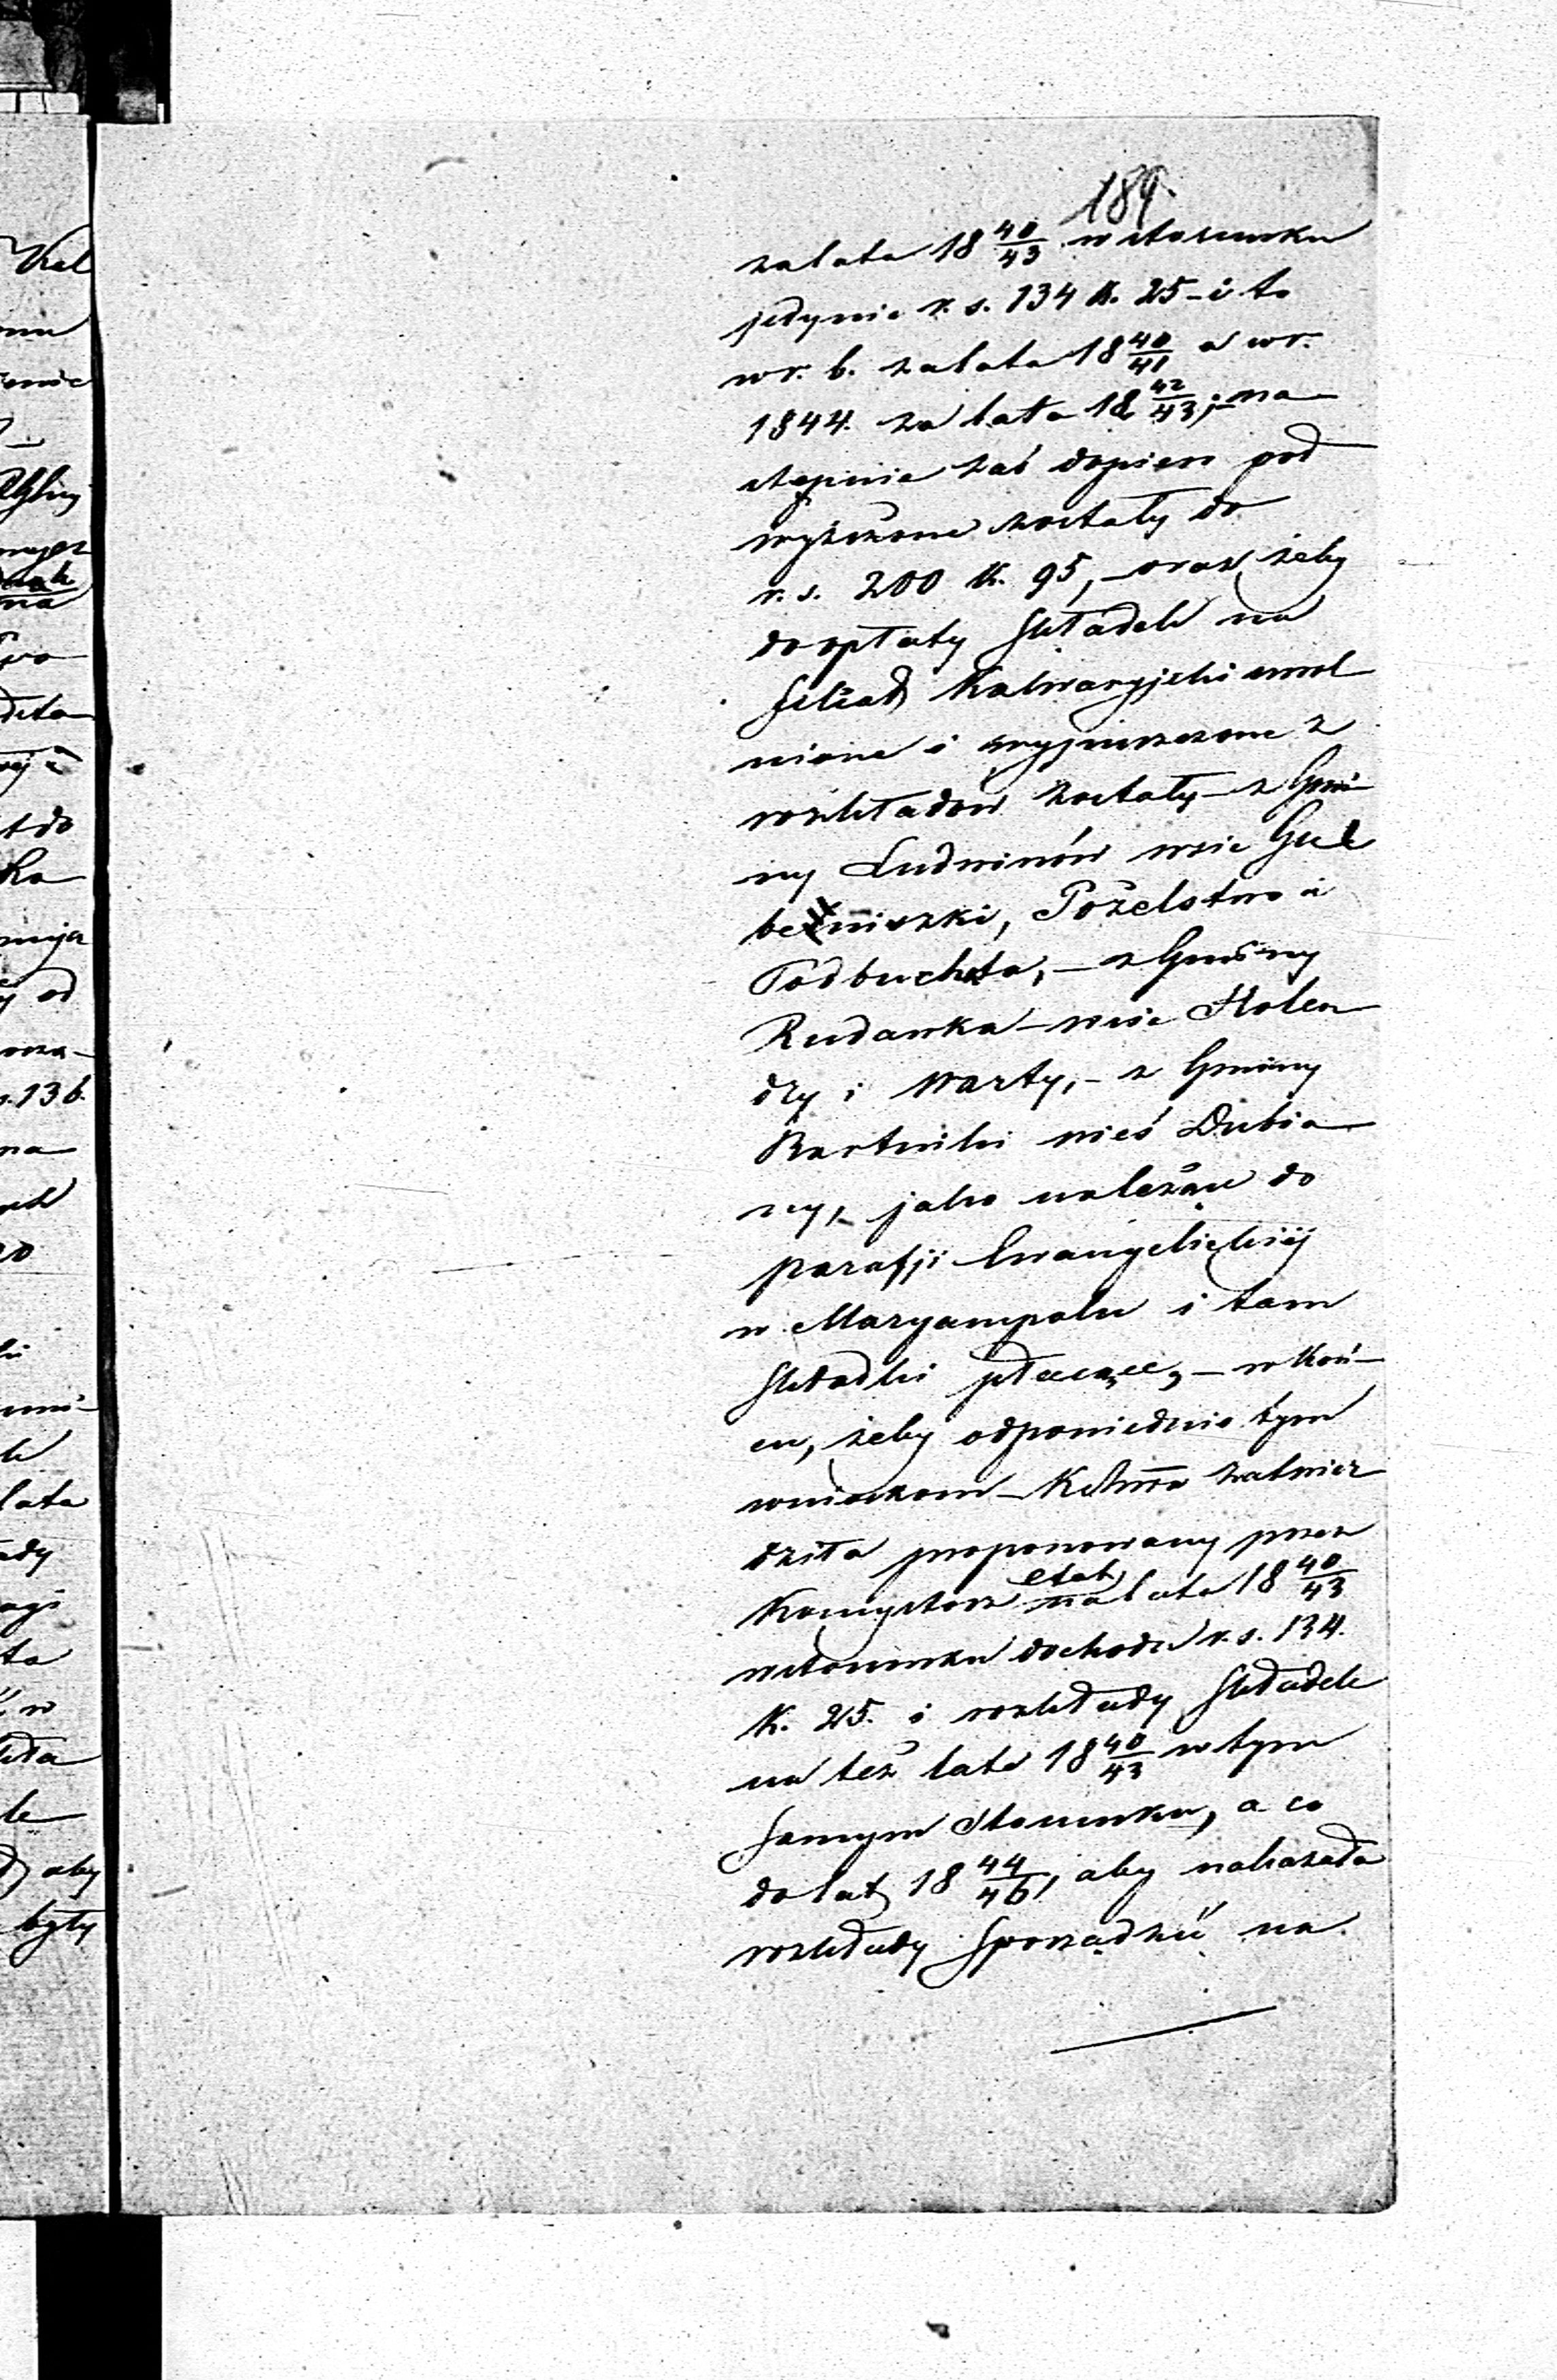 189.
za lata 18 40/43 w stosunku
jedynie r. s. 134 k. 25 – i to
w r. b. za lata 18 40/41 a w r.
1844. za lata 18 42/43; – na
stępnie zaś dopiero pod
wyższone zostały do
r. s. 200 k. 95, – oraz żeby
do opłaty składek na
filiał Kalwaryjski uwol
nione i wypuszczone z
rozkładów zostały – z Gmi
ny Ludwinów wsie Gul
bieniszki, Poželstwo i
Podbuchta, – z Gminy
Rudawka – wsie Holen
dry i Warty, – z Gminy
Bartniki wieś Dubia
ny, jako należące do
parafji Ewangielickiéj
w Maryampolu i tam
składki płacące, – w koń–
cu, żeby odpowiednio tym
wnioskom – zatwier
dziła proponowany przez
Konsystorz etat na lata 18 40/43
w stosunku dochodu r. s. 134.
k. 25. i rozkłady składek
na też lata 18 40/43 w tym
samym stosunku, a co
do lat 18 44/46, aby nakazała
rozkłady sporządzić na
Kal
onu
lata
ady
aby
były
na
od
s. 136.